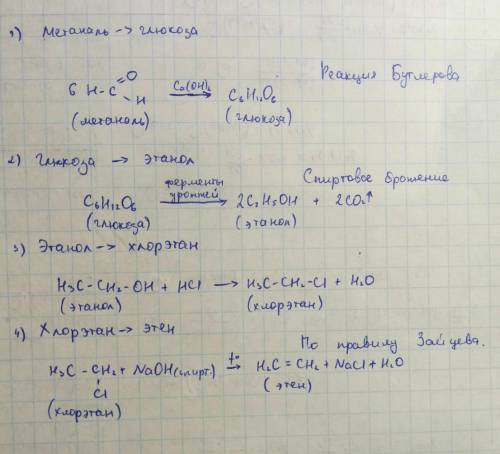 1) Метаналь -> глюкоза
O
6 H-C Ca(OH)2 C6H12O6 Реакция Бутлерова
H
(метаналь) (глюкоза)
2) Глюкоза -> этанол
Спиртовое брожение
ферменты
C6H12O6 дрожжей 2C2H5OH + 2CO2↑
(глюкоза) (этанол)
3) Этанол -> хлорэтан
H3C-CH2-OH + HCl -> H3C-CH2-Cl + H2O
(этанол) (хлорэтан)
4) Хлорэтан -> этен
По правилу Зайцева.
H3C-CH2 + NaOH(спирт.) t° -> H2C=CH2 + NaCl + H2O
Cl (этен)
(хлорэтан)